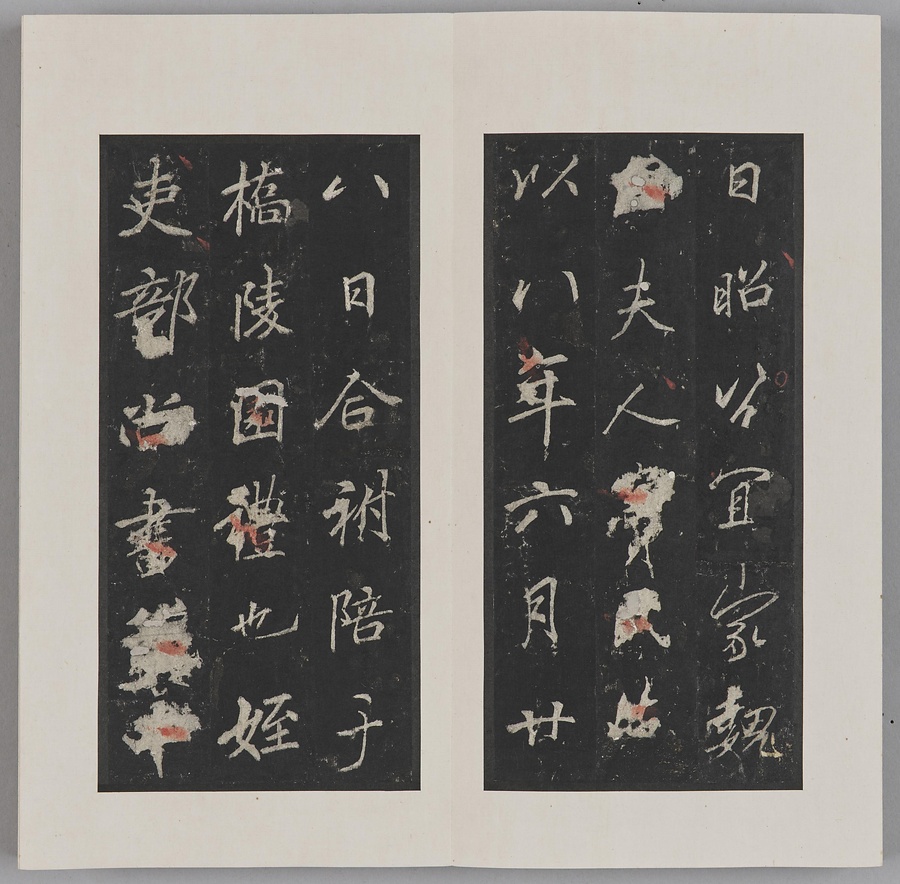 日昭宜家魏
夫人竇氏
以八年六月廿
八日合祔陪于
橋陵園禮也姪
吏部尚書兼中